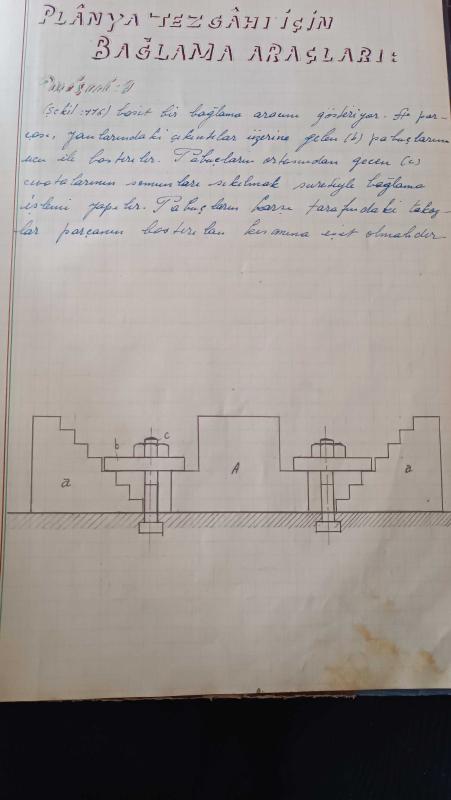 PLÂNYA TEZGÂHI İÇİN
BAĞLAMA ARAÇLARI:
(Şekil: 176) basit bir bağlama aracını gösteriyor. A par-
çası, yanlarındaki çıkıntılar üzerine gelen (b) pabuçlarının
ucu ile bastırılır. Pabuçların ortasından geçen (c)
civatalarının somunları sıkılmak suretiyle bağlama
işlemi yapılır. Pabuçların karşı tarafındaki takoz-
lar parçanın bastırılan kısmına eşit olmalıdır
b c
a A a